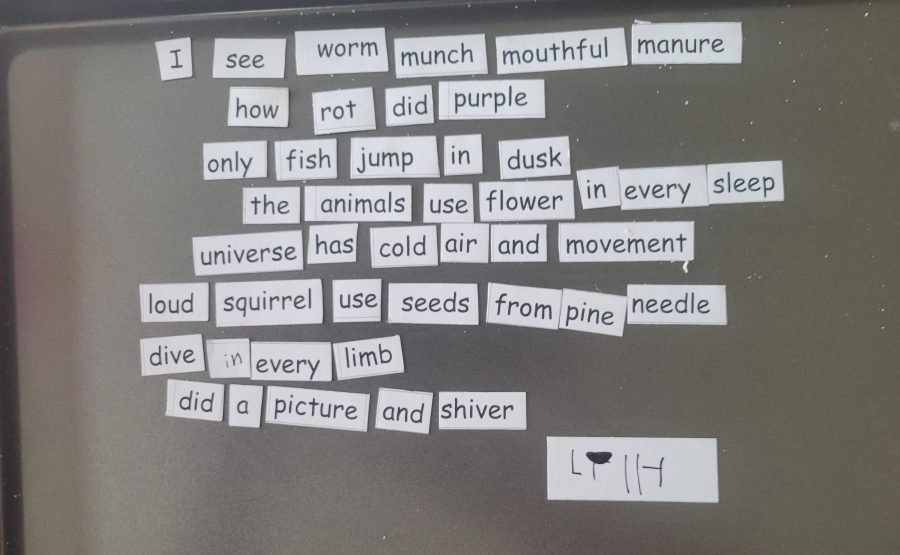 I see worm munch mouthful manure
how rot did purple
only fish jump in dusk
the animals use flower in every sleep
universe has cold air and movement
loud squirrel use seeds from pine needle
dive in every limb
did a picture and shiver